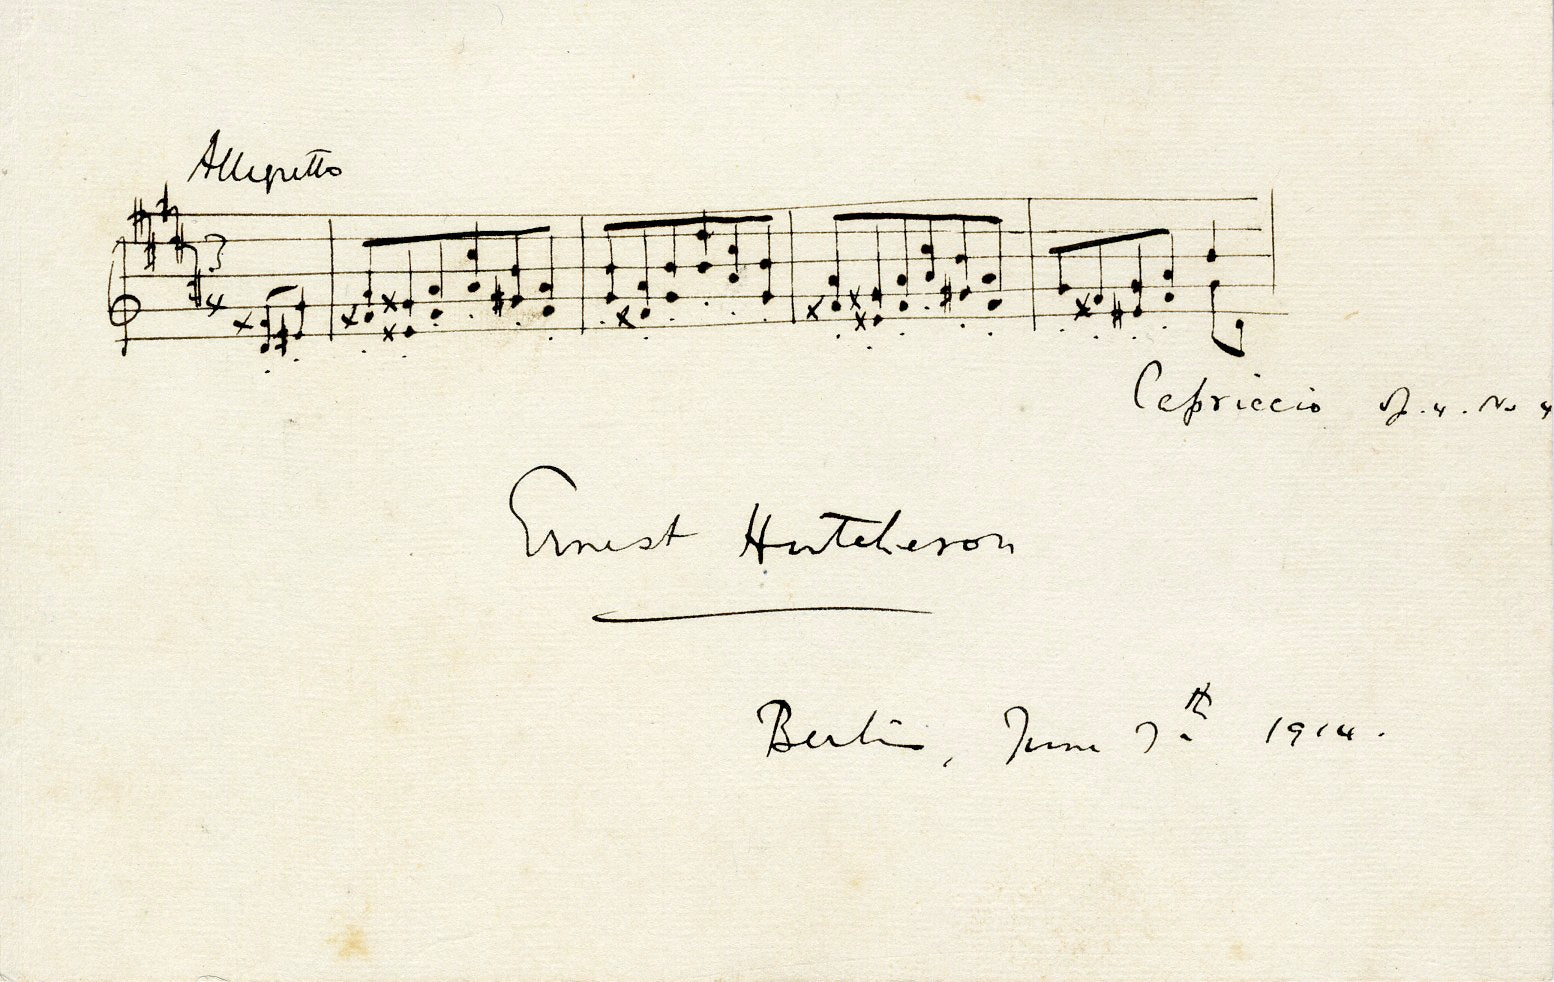 Allegretto
3
4
Capriccio Op. 4. No 4
Ernest Hutcheson
Berlin, June 7th 1914.